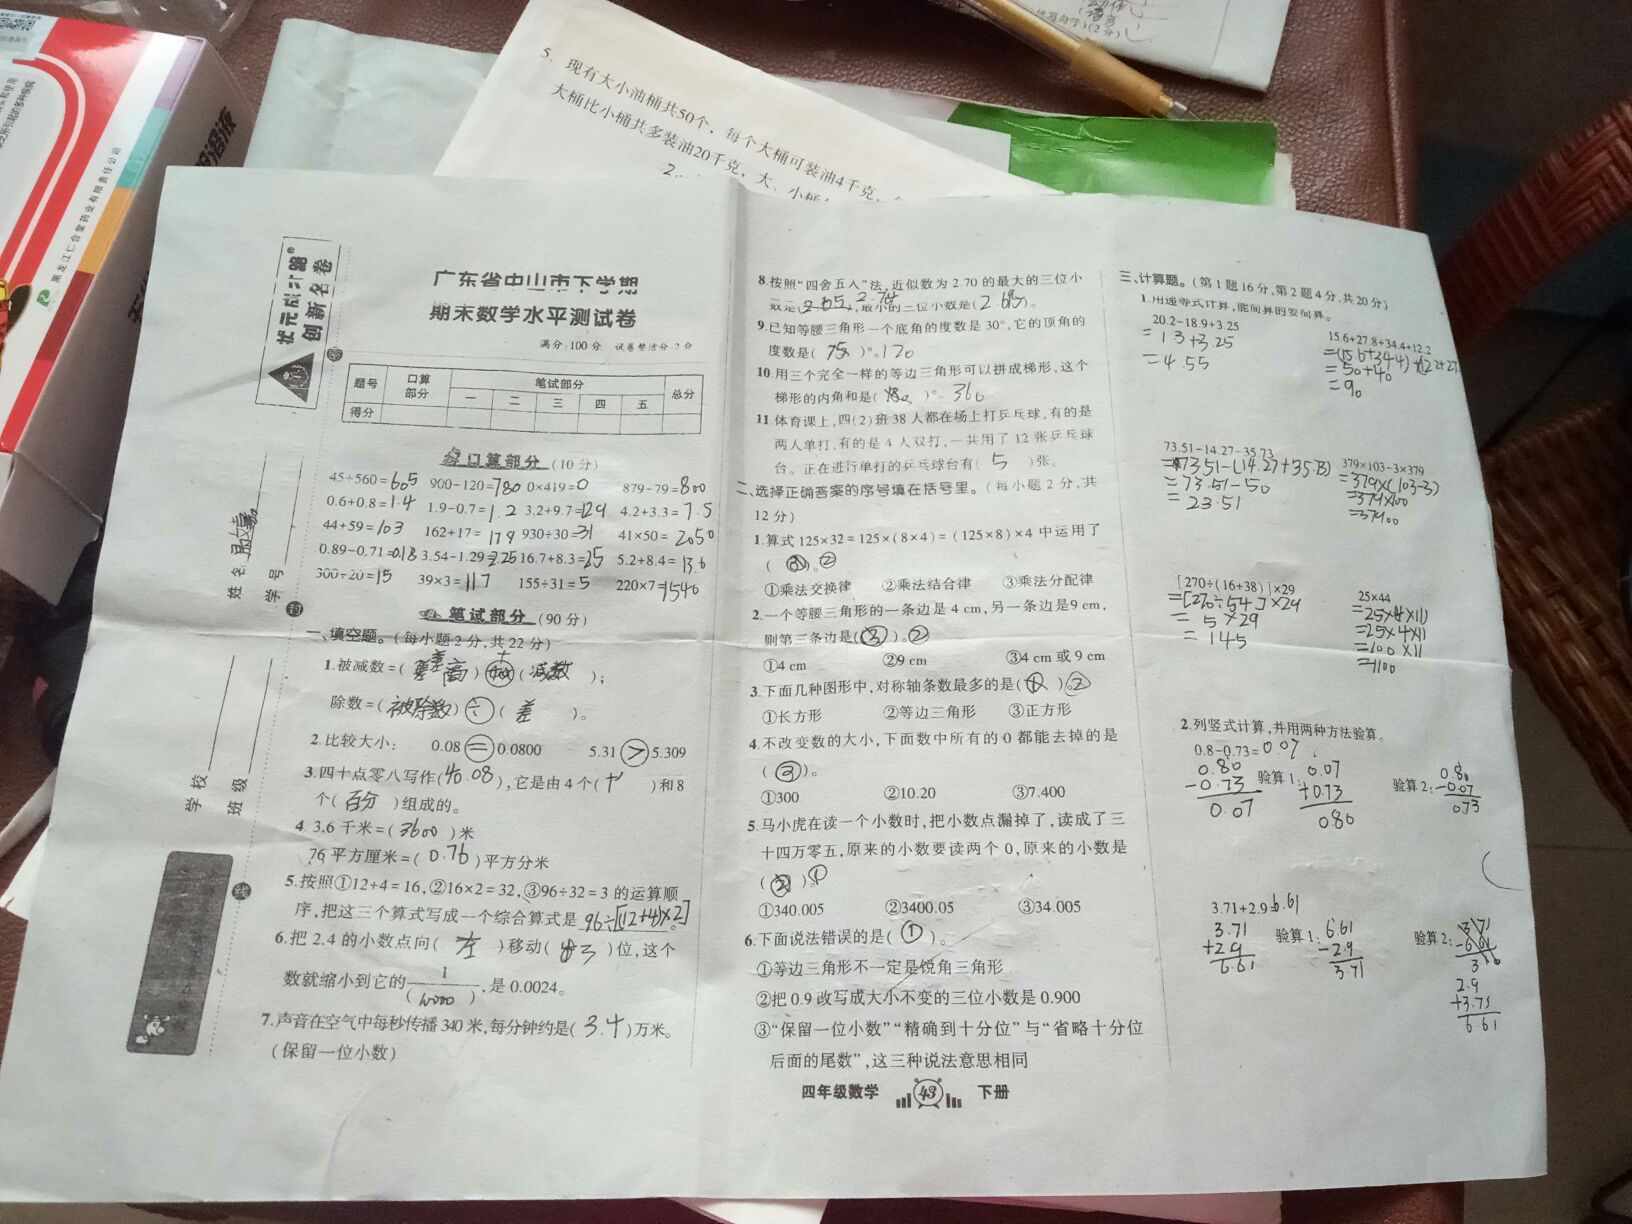 5. 现有大小油桶共50个，每个大桶可装油4千克，
大桶比小桶共多装油20千克，大、小桶
黑龙江仁合堂药业有限责任公司
状元成才路®
创新名卷
学校
班级
姓名
学号
广东省中山市下学期
期末数学水平测试卷
满分:100分 试卷整洁分:2分
题号 口算部分 笔试部分 总分
一 二 三 四 五
得分
口算部分 (10分)
45+560=605 900-120=780 0×419=0 879-79=800
0.6+0.8=1.4 1.9-0.7=1.2 3.2+9.7=12.9 4.2+3.3=7.5
44+59=103 162+17=179 930÷30=31 41×50=2050
0.89-0.71=0.18 3.54-1.29=2.25 16.7+8.3=25 5.2+8.4=13.6
300÷20=15 39×3=117 155÷31=5 220×7=1540
笔试部分 (90分)
一、填空题。(每小题2分,共22分)
1.被减数=( 差 )+( 减数 );
除数=( 被除数 )÷( 差 )。
2.比较大小: 0.08=0.0800 5.31>5.309
3.四十点零八写作(40.08),它是由4个(十)和8
个(百分)组成的。
4.3.6千米=(3600)米
76平方厘米=(0.76)平方分米
5.按照①12+4=16,②16×2=32,③96÷32=3的运算顺
序,把这三个算式写成一个综合算式是 96÷[(12+4)×2]。
6.把2.4的小数点向(左)移动(3)位,这个
数就缩小到它的1/(1000),是0.0024。
7.声音在空气中每秒传播340米,每分钟约是(3.4)万米。
(保留一位小数)
8.按照“四舍五入”法,近似数为2.70的最大的三位小
数是( ),最小的三位小数是( )。
9.已知等腰三角形一个底角的度数是30°,它的顶角的
度数是(75)°。120
10.用三个完全一样的等边三角形可以拼成梯形,这个
梯形的内角和是(180)°。360
11.体育课上,四(2)班38人都在场上打乒乓球,有的是
两人单打,有的是4人双打,一共用了12张乒乓球
台。正在进行单打的乒乓球台有(5)张。
二、选择正确答案的序号填在括号里。(每小题2分,共
12分)
1.算式125×32=125×(8×4)=(125×8)×4中运用了
( )。②
①乘法交换律 ②乘法结合律 ③乘法分配律
2.一个等腰三角形的一条边是4 cm,另一条边是9 cm,
则第三条边是(③)。②
①4 cm ②9 cm ③4 cm或9 cm
3.下面几种图形中,对称轴条数最多的是( )。②
①长方形 ②等边三角形 ③正方形
4.不改变数的大小,下面数中所有的0都能去掉的是
(③)。
①300 ②10.20 ③7.400
5.马小虎在读一个小数时,把小数点漏掉了,读成了三
十四万零五,原来的小数要读两个0,原来的小数是
( )。①
①340.005 ②3400.05 ③34.005
6.下面说法错误的是(①)。
①等边三角形不一定是锐角三角形
②把0.9改写成大小不变的三位小数是0.900
③“保留一位小数”“精确到十分位”与“省略十分位
后面的尾数”,这三种说法意思相同
三、计算题。(第1题16分,第2题4分,共20分)
1.用递等式计算,能简算的要简算。
20.2-18.9+3.25
=13+3.25
=4.55
15.6+27.8+34.4+12.2
=50+40
=90
73.51-14.27-35.73
=73.51-(14.27+35.73)
=73.51-50
=23.51
379×103-3×379
=379×(103-3)
=379×100
=37900
[270÷(16+38)]×29
=[270÷54]×29
=5×29
=145
25×44
=25×(4×11)
=25×4×11
=100×11
=1100
2.列竖式计算,并用两种方法验算。
0.8-0.73=0.07
0.80
-0.73
0.07
验算1:
0.07
+0.73
0.80
验算2:
0.80
-0.07
0.73
3.71+2.9=6.61
3.71
+2.9
6.61
验算1:
6.61
-2.9
3.71
验算2:
2.9
+3.71
6.61
四年级数学 43 下册